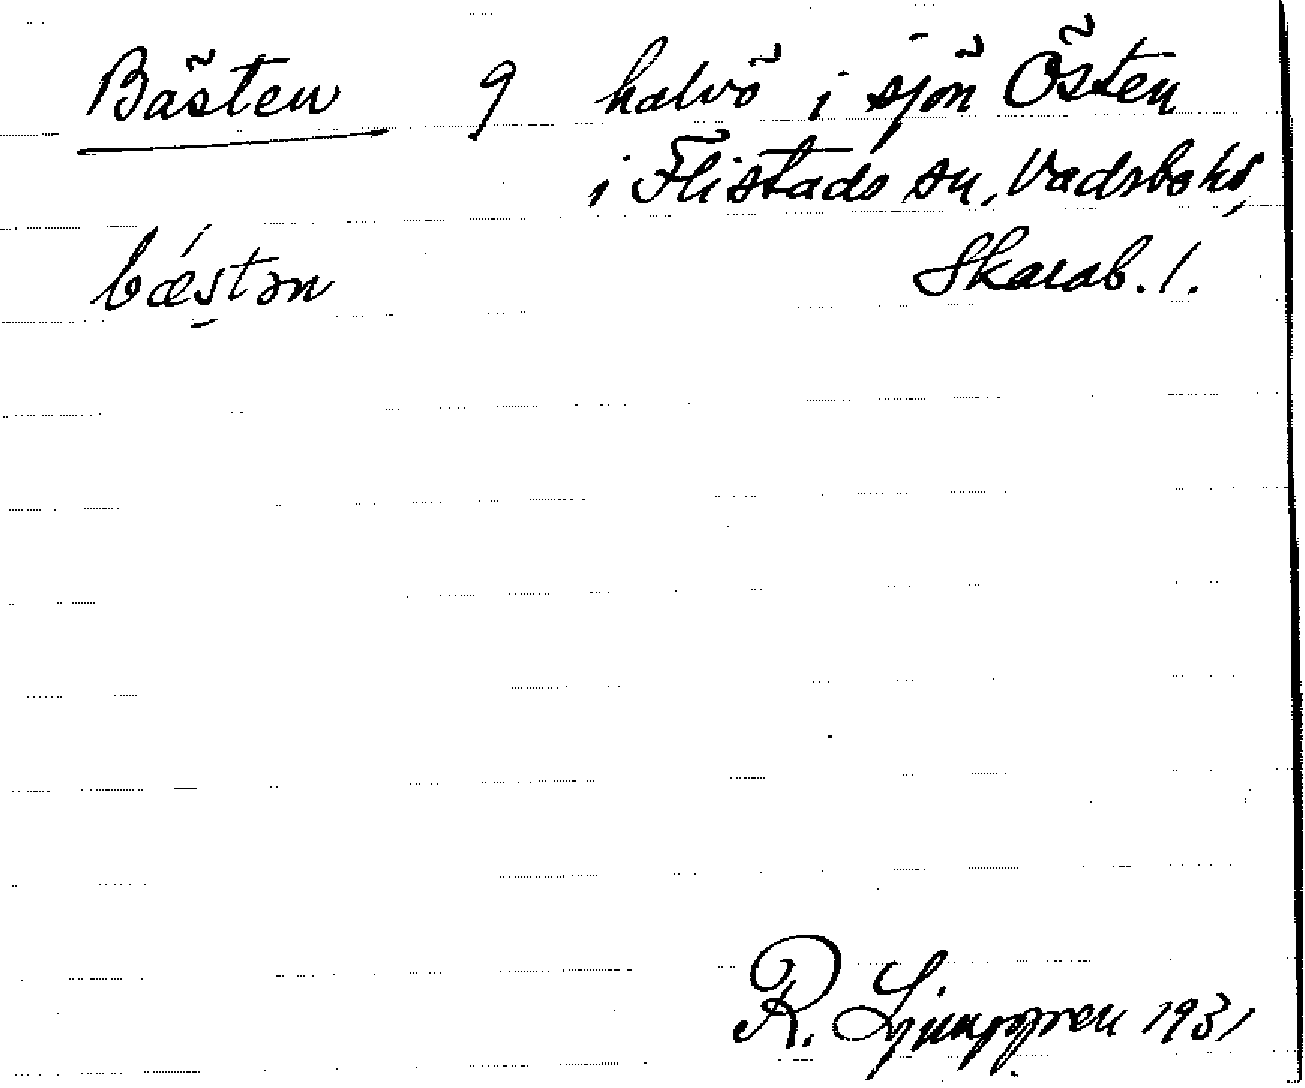 Bästen 9 halvö i sjön Östen
i Flistads sn, Vadsbo hd,
bǽstən Skarab. l.
R. Ljunggren 1931